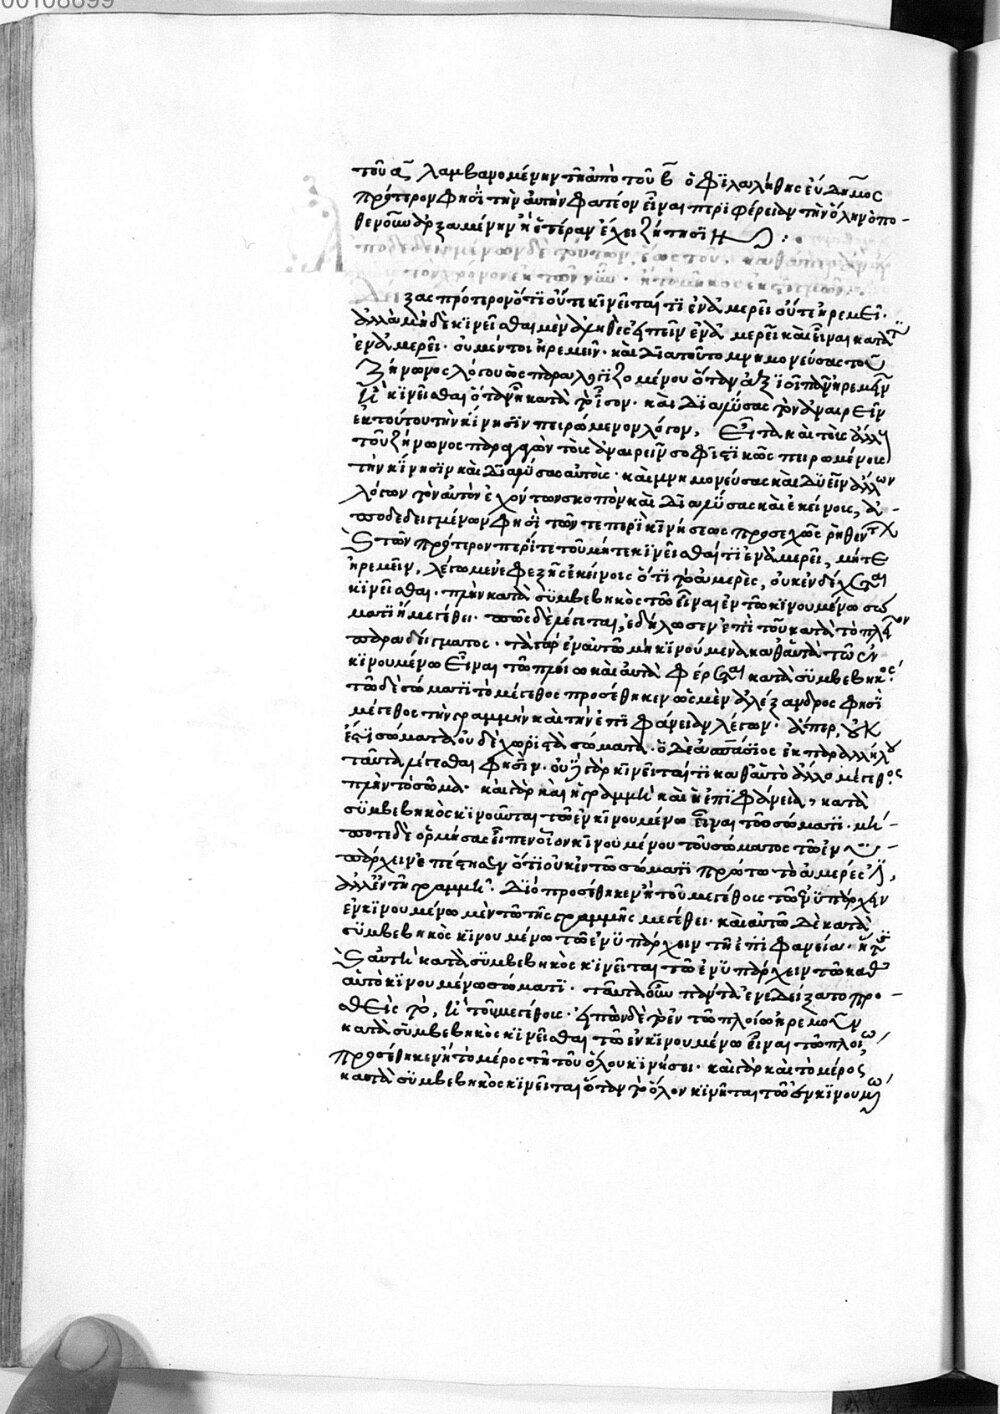 τοῦ α λαμβανομένην τῇ ἀπὸ τοῦ β ὁ φιλαλήθης εὔδημος
πρότερον φησὶ τὴν αὐτὴν φατέον εἶναι περιφέρειαν τὴν ὅλην ὁπο-
θενοῦν ἀρξαμένην ἢ ἑτέραν ἔχει ζήτησιν
ἀποδεδειγμένων δὲ τούτων, καθάπερ
τὸν χρόνον ἐκ τῶν νῦν. ἢ τὸ μῆκος ἐκ στιγμῶν.
Δείξας πρότερον ὅτι οὔτε κινεῖταί τι ἐν ἀμερεῖ οὔτε ἠρεμεῖ.
ἀλλὰ μὴ δὲ κινεῖσθαι μὲν ἀληθὲς εἰπεῖν ἐν ἀμερεῖ καὶ εἶναι κατά τι
ἐν ἀμερεῖ. οὐ μέντοι ἠρεμεῖν. καὶ διὰ τοῦτο μνημονεύσας τοῦ
ζήνωνος λόγου ὡς παραλογιζομένου ὅταν ἀξιοῖ πᾶν ἠρεμεῖν
ἢ κινεῖσθαι ὅταν ᾖ κατὰ τὸ ἴσον. καὶ διαλύσας τὸν ἀναιρεῖν
ἐκ τούτου τὴν κίνησιν πειρώμενον λόγον, εἶτα καὶ τοῖς ἄλλοις
τοῦ ζήνωνος παραβαλὼν τοῖς ἀναιρεῖν σοφιστικῶς πειρωμένοις
τὴν κίνησιν καὶ διαλύσας αὐτοὺς. καὶ μνημονεύσας καὶ δυεῖν ἄλλων
λόγων τὸν αὐτὸν ἐχόντων σκοπὸν καὶ διαλύσας καὶ ἐκείνους, ἀ-
ποδεδειγμένων φησὶ τῶν τε περὶ κινήσεως προσεχῶς ῥηθέντων
καὶ τῶν πρότερον περί τε τοῦ μήτε κινεῖσθαί τι ἐν ἀμερεῖ, μήτε
ἠρεμεῖν, λέγωμεν ἐφεξῆς ἐκείνοις ὅτι τὸ ἀμερὲς, οὐκ ἐνδέχεται
κινεῖσθαι. πλὴν κατὰ συμβεβηκὸς τῷ εἶναι ἐν τῷ κινουμένῳ σώ
ματι ἢ μεγέθει. πῶς δὲ λέγεται, ἐδήλωσεν ἐπὶ τοῦ κατὰ τὸ πλοῖον
παραδείγματος. τὰ γὰρ ἐν αὐτῷ μὴ κινούμενα καθ' αὑτὰ τῷ ἐν
κινουμένῳ εἶναι τῷ πλοίῳ καὶ αὐτὰ φέρεται κατὰ συμβεβηκός.
τῷ δὲ σώματι τὸ μέγεθος προσέθηκεν ὡς μὲν ἀλέξανδρος φησὶ
μέγεθος τὴν γραμμὴν καὶ τὴν ἐπιφάνειαν λέγων. ἅπερ, οὐκ
ἔστι σώματα, οὐδὲ χωριστὰ σώματα. ὁ δὲ ἀσπάσιος ἐκ παραλλήλου
ταῦτα λέγεσθαι φησὶν. οὐ γὰρ κινεῖταί τι καθ' αὑτὸ ἄλλο μέγεθος
πλὴν τὸ σῶμα. καὶ γὰρ καὶ ἡ γραμμὴ καὶ ἡ ἐπιφάνεια, κατὰ
συμβεβηκὸς κινοῦνται τῷ ἐν κινουμένῳ εἶναι τῷ σώματι. μή-
ποτε δὲ ὁρμήσας εἰπεν οἷον κινουμένου τοῦ σώματος τῷ ἐν-
υπάρχειν ἐπέστησεν ὅτι οὐκ ἐν τῷ σώματι πρώτῳ τὸ ἀμερές ἐστι,
ἀλλ' ἐν τῇ γραμμῇ. διὸ προσέθηκεν ἢ τοῦ μεγέθους τῷ ἐνυπάρχειν
ἐν κινουμένῳ μὲν τῷ τῆς γραμμῆς μεγέθει. καὶ αὐτῷ δὲ κατὰ
συμβεβηκὸς κινουμένῳ τῷ ἐνυπάρχειν τῇ ἐπιφανείᾳ.
καὶ αὐτὴ κατὰ συμβεβηκὸς κινεῖται τῷ ἐνυπάρχειν τῷ καθ'
αὑτὸ κινουμένῳ σώματι. ταῦτα οὖν πάντα ἐνεδείξατο προ-
σθεὶς τὸ, ἢ τοῦ μεγέθους. εἰπὼν δὲ τὸ ἐν τῷ πλοίῳ ἠρεμοῦν
κατὰ συμβεβηκὸς κινεῖσθαι τῷ ἐν κινουμένῳ εἶναι τῷ πλοίῳ,
προσέθηκεν ἢ τὸ μέρος τῇ τοῦ ὅλου κινήσει. καὶ γὰρ καὶ τὸ μέρος
κατὰ συμβεβηκὸς κινεῖται ὅταν τὸ ὅλον κινῆται τῷ ἐν κινουμένῳ